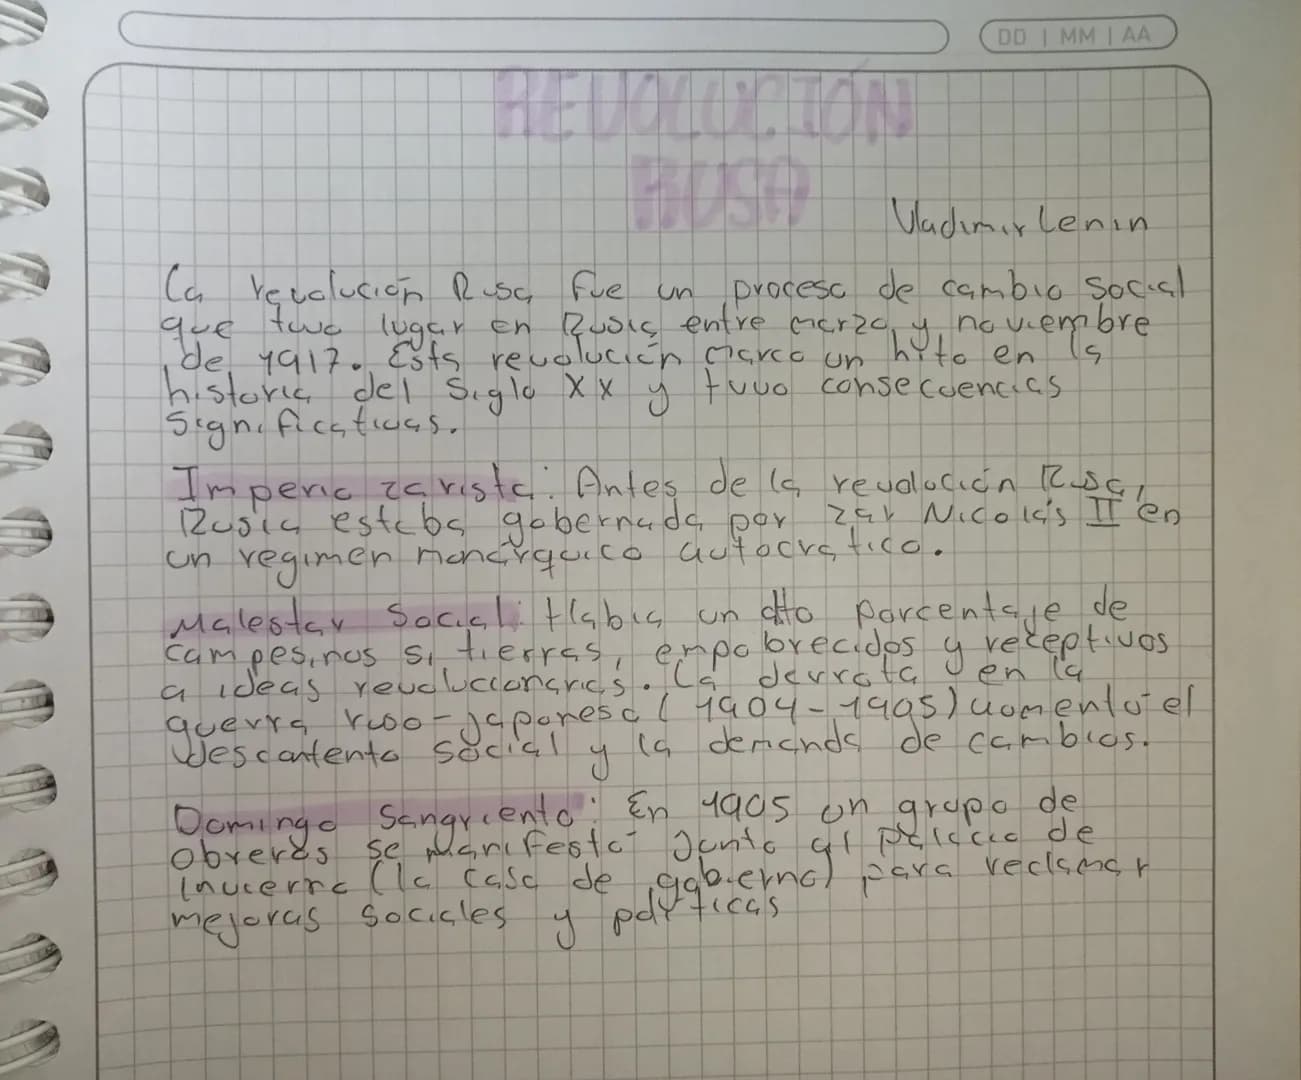 DD | MM | AA
REVOLUCIÓN
RUSA
Vladimir Lenin
La revolución Rusa fue un proceso de cambio social
que tuvo lugar en Rusia entre marzo y noviembre
de 1917. Esta revolución marco un hito en la
historia del siglo XX y tuvo consecuencias
significativas.
Imperio zarista: Antes de la revolución Rusa,
Rusia estaba gobernada por zar Nicolás II en
un regimen monárquico autocratico.
Malestar Social: Había un alto porcentaje de
campesinos si tierras, empobrecidos y receptivos
a ideas revolucionarias. La derrota en la
guerra ruso-japonesa (1904-1905) aumentó el
descontento social y la demanda de cambios.
Domingo Sangriento: En 1905 un grupo de
obreros se manifestó junto al palacio de
invierno (la casa de gobierno) para reclamar
mejoras sociales y políticas